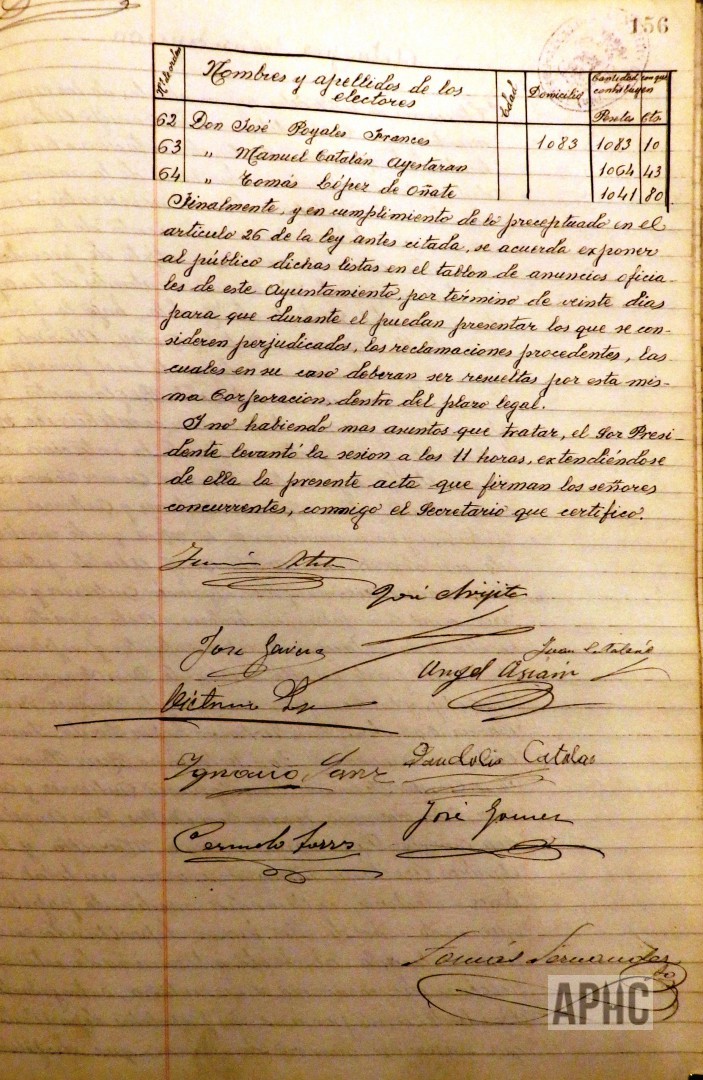 156
Nº de orden | Nombres y apellidos de los electores | Edad | Domicilio | Cantidad con que contribuyen
Pesetas | Cts.
62 Don José Royales Frances 1083 1083 10
63 " Manuel Catalán Ayestaran 1064 43
64 " Tomás López de Oñate 1041 80
Finalmente, y en cumplimiento de lo preceptuado en el
articulo 26 de la ley antes citada, se acuerda exponer
al público dichas listas en el tablon de anuncios oficia-
les de este Ayuntamiento, por término de veinte dias
para que durante el puedan presentar los que se con-
sideren perjudicados, los reclamaciones procedentes, las
cuales en su caso deberan ser resueltas por esta mis-
ma Corporacion, dentro del plazo legal.
Y no habiendo mas asuntos que tratar, el Sor Presi-
dente levantó la sesion a los 11 horas, extendiéndose
de ella la presente acta que firman los señores
concurrentes, conmigo el Secretario que certifico.
José
Jose
Juan Catalán
Angel Asiáin
Ignacio Sanz
Catalan
José Gomez
Carmelo Torres
Tomás Fernandez
APHC